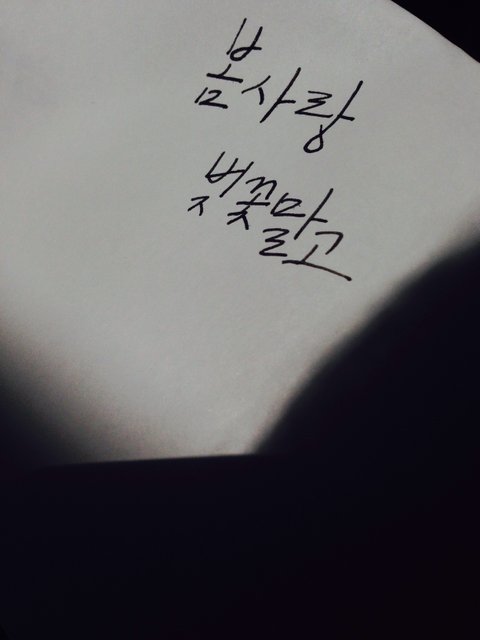 봄사랑
벚꽃말고